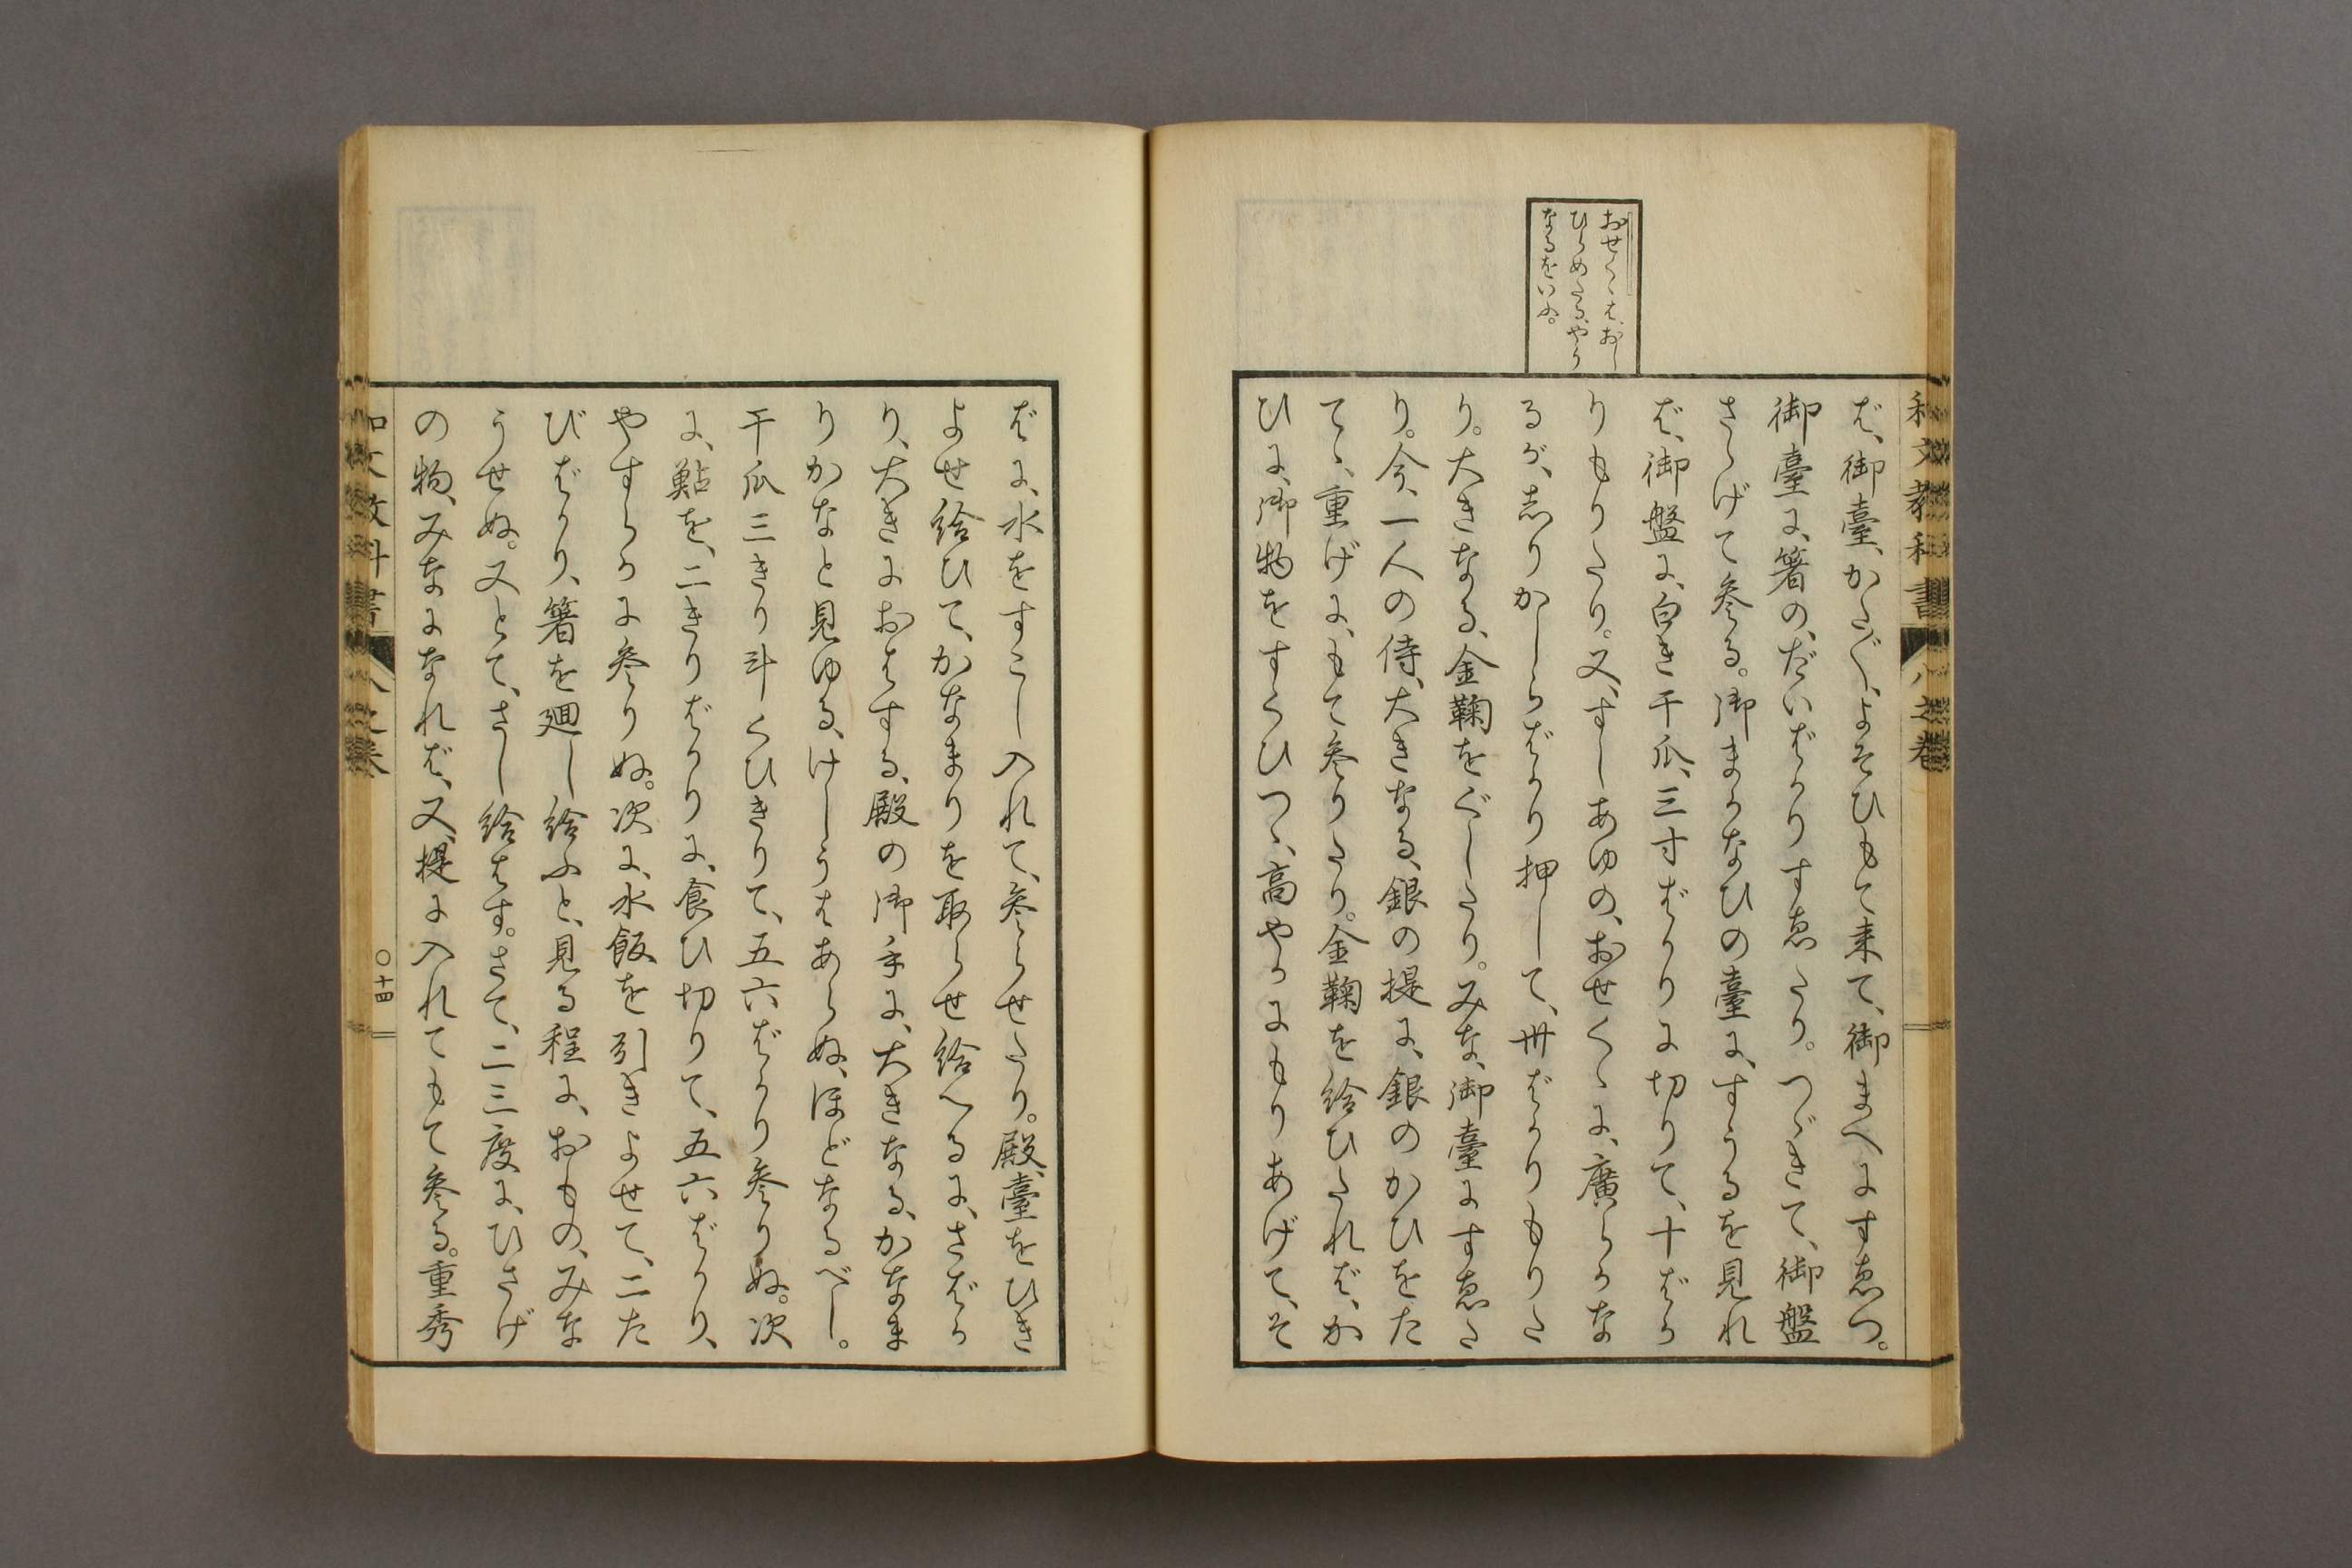 和文教科書 八之巻
おせくゝは、おし
ひらめたる、やう
なるをいふ。
ば、御臺、かたがた、よそひもて来て、御まへにすゑつ。
御臺に、箸の、だいばかりすゑたり。つゞきて、御盤
さゝげて参る。御まかなひの臺に、すうるを見れ
ば、御盤に、白き干瓜、三寸ばかりに切りて、十ばか
りもりたり。又、すしあゆの、おせくゝに、廣らかな
るが、志りかしらばかり押して、卅ばかりもりた
り。大きなる、金鞠をぐしたり。みな、御臺にすゑた
り。今、一人の侍、大きなる、銀の提に、銀のかひをた
てゝ、重げに、もて参りたり。金鞠を給ひたれば、か
ひに、御物をすくひつゝ、高やかにもりあげて、そ
ばに、水をすこし入れて、参らせたり。殿、臺をひき
よせ給ひて、かなまりを取らせ給へるに、さばか
り、大きにおはする、殿の御手に、大きなる、かなま
りかなと見ゆる、けしうはあらぬ、ほどなるべし。
干瓜三きり斗くひきりて、五六ばかり参りぬ。次
に、鮎を、二きりばかりに、食ひ切りて、五六ばかり、
やすらかに参りぬ。次に、水飯を引きよせて、二た
びばかり、箸を廻し給ふと、見る程に、おもの、みな
うせぬ。又とて、さし給はす。さて、二三度に、ひさげ
の物、みなになれば、又、提に入れてもて参る。重秀
和文教科書 八之巻 〇十四